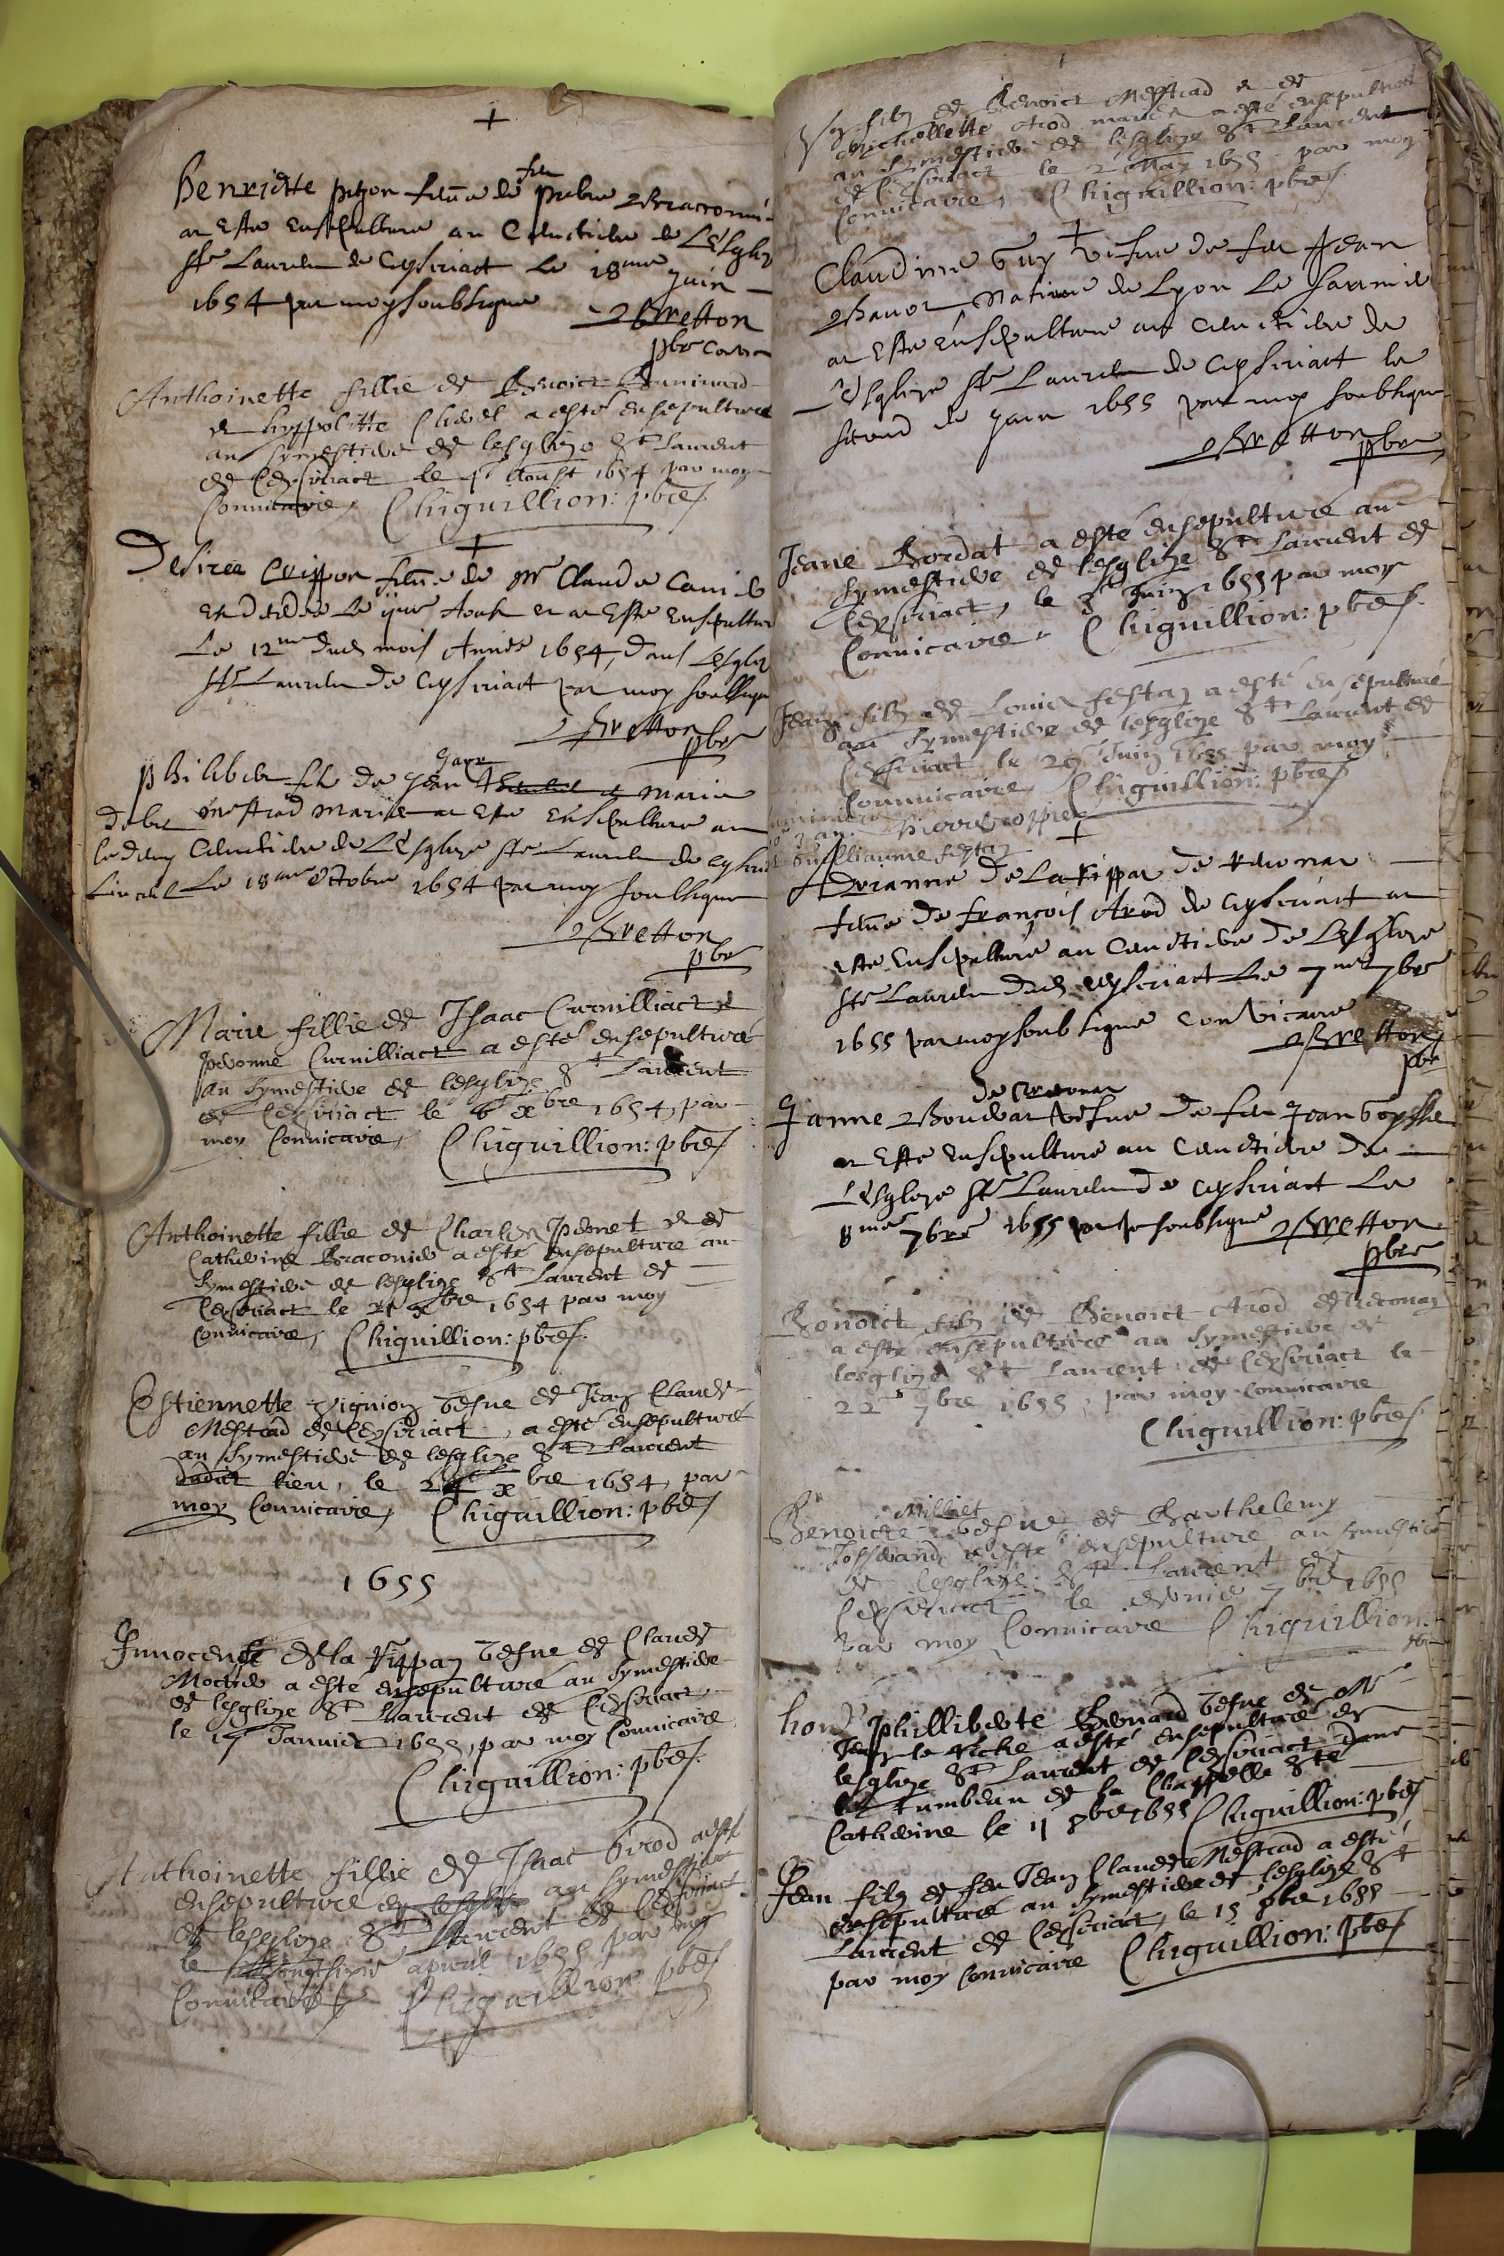 +
Henriette pithon feme de feu piere Braconnie
at este ensepulture au Cemetiere de Lesglise
st Laurent de Ceyseriact le 18me Juin
1654 par moy soubsigne Bretton
pbre
Anthoinette fillie de Benoict
et hyppolitte Clavel a esté ensepulturé
au Symestiere de lesglize St Laurent
de Ceyseriact le Aoust 1654 par moy
Convicaire, Chiguillion: pbre
+
Desiree Crippon feme de Mr Claude
est decedee Le Aoust et at este ensepulture
Le 12me dud mois Annee 1654, dans Lesglise
st Laurent de Ceyseriact par moy soubsigne
Bretton
pbre
philiber fils de Jean Marin
Mestrad Maries at este ensepulture au
Cemetiere de Lesglise st Laurent de Ceyseriact
Le 18me Octobre 1654 par moy soubsigne
Bretton
pbre
Marie fillie de Isaac Curnilliact et
pvonne Curnilliact a esté ensepulturé
au Symestiere de lesglize St Laurent
de Ceyseriact le 6e xbre 1654, par
moy Convicaire, Chiguillion: pbre
Anthoinette fillie de Charles pvenet et de
Catherine Braconier a esté ensepulturé au
Symestiere de lesglize St Laurent de
Ceyseriact le 21 xbre 1654 par moy
Convicaire, Chiguillion: pbre
Estiennette vignion vefue de Jean Claude
Mestrad de Ceyseriact, a esté ensepulturé
au Symestiere de lesglize St Laurent
dudict lieu, le xbre 1654, par
moy Convicaire, Chiguillion: pbre
1655
Innocente de la Rippaz vefue de Claude
Mochet a esté ensepulturé au Symestiere
de lesglize St Laurent de Ceyseriact
le Januier 1655, par moy Convicaire
Chiguillion: pbre
Anthoinette fillie de Isaac Girod a esté
ensepulture au Symestiere
de lesglize St Laurent de Ceyseriact
le apuril 1655 par moy
Convicaire Chiguillion pbre
filz de Benoict Mestrad et de
Michollette Arod maries a esté ensepulturé
au Symestiere de lesglize St Laurent
de Ceyseriact le 2 May 1655 par moy
Convicaire, Chiguillion: pbre
+
Claudine Guy vefue de feu Jean
Bavot Native de Lyon Le
at este ensepulture au Cemetiere de
Lesglize st Laurent de Ceyseriact le
second de Juin 1655 par moy soubsigne
Bretton
pbre
Jeane Bordat a esté ensepulturé au
Symestiere de lesglize St Laurent de
Ceyseriact, le Juin 1655 par moy
Convicaire Chiguillion: pbre
Jean filz de Louis festaz a esté ensepulturé
au Symestiere de lesglize St Laurent de
Ceyseriact le 29 Juin 1655 par moy
Convicaire, Chiguillion: pbre
pierre
Guilliaume festaz
+
de La Rippaz de
feme de francois Arod de Ceyseriact at
este ensepulture au Cemetiere de Lesglize
st Laurent dud Ceyseriact Le 7me 7bre
1655 par moy soubsigne Convicaire
Bretton
pbre
de
Janne vefue de feu Jean
at este ensepulture au Cemetiere de
Lesglize st Laurent de Ceyseriact Le
8me 7bre 1655 par je soubsigne Bretton
pbre
Benoict filz de Benoict Arod de
a esté ensepulturé au Symestiere de
lesglize St Laurent de Ceyseriact le
22e 7bre 1655, par moy Convicaire
Chiguillion: pbre
Milliet
Benoicte vefue de Barthelemy
Josserand a esté ensepulturé au Symestiere
de lesglize St Laurent de
Ceyseriact le 7bre 1655
par moy Convicaire Chiguillion:
pbre
hond phillibevte vefue de Mr
Jean a esté ensepulturé de
lesglize St Laurent de Ceyseriact dans
le tumbeau de la Chappelle Ste
Catherine le 11 8bre 1655 Chiguillion: pbre
Jean filz de feu Jean Claude Mestrad a esté
ensepulturé au Symestiere de lesglize St
Laurent de Ceyseriact, le 15 8bre 1655
par moy Convicaire Chiguillion: pbre